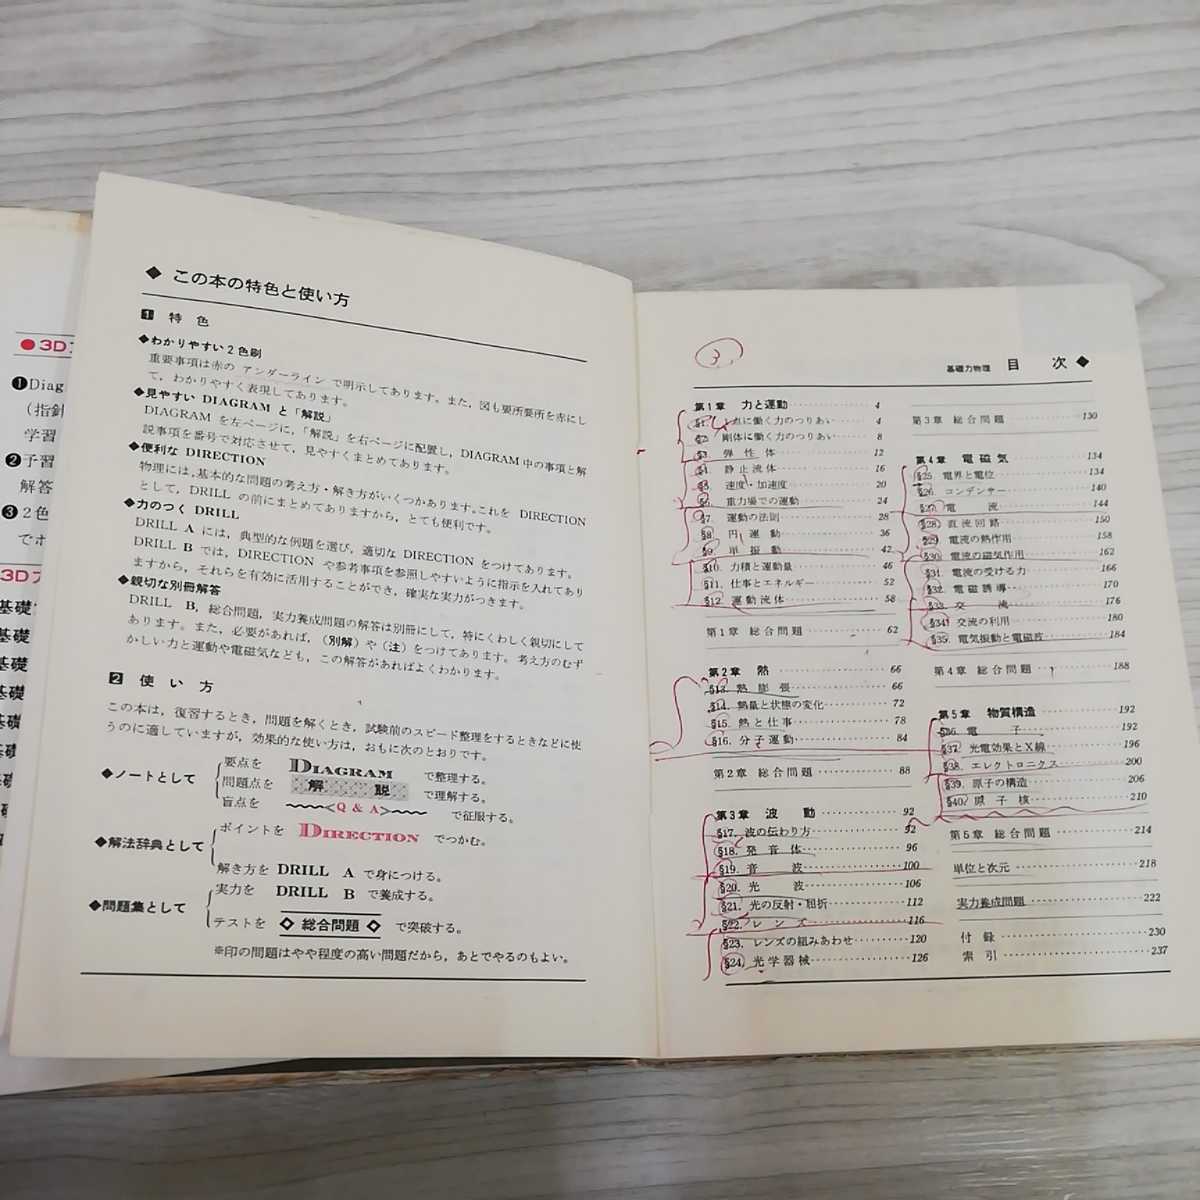 ●3D
❶Diag
（指針
学習
❷予習
解答
❸2色
でポ
3D
基礎
基礎
基礎
基礎
基礎
基礎
基礎
◆ この本の特色と使い方
1 特色
◆わかりやすい2色刷
重要事項は赤の アンダーライン で明示してあります。また，図も要所要所を赤にし
て，わかりやすく表現してあります。
◆見やすい DIAGRAM と「解説」
DIAGRAM を左ページに，「解説」を右ページに配置し，DIAGRAM 中の事項と解
説事項を番号で対応させて，見やすくまとめてあります。
◆便利な DIRECTION
物理には，基本的な問題の考え方・解き方がいくつかあります。これを DIRECTION
として，DRILL の前にまとめてありますから，とても便利です。
◆力のつく DRILL
DRILL A には，典型的な例題を選び，適切な DIRECTION をつけてあります。
DRILL B では，DIRECTION や参考事項を参照しやすいように指示を入れてあり
ますから，それらを有効に活用することができ，確実な実力がつきます。
◆親切な別冊解答
DRILL B，総合問題，実力養成問題の解答は別冊にして，特にくわしく親切にして
あります。また，必要があれば，（別解）や（注）をつけてあります。考え方のむず
かしい力と運動や電磁気なども，この解答があればよくわかります。
2 使い方
この本は，復習するとき，問題を解くとき，試験前のスピード整理をするときなどに使
うのに適していますが，効果的な使い方は，おもに次のとおりです。
◆ノートとして
要点を DIAGRAM で整理する。
問題点を 解説 で理解する。
盲点を <Q & A> で征服する。
◆解法辞典として
ポイントを DIRECTION でつかむ。
解き方を DRILL A で身につける。
◆問題集として
実力を DRILL B で養成する。
テストを ◇総合問題◇ で突破する。
※印の問題はやや程度の高い問題だから，あとでやるのもよい。
3
基礎力物理 目次◆
第1章 力と運動 4
§1. 1点に働く力のつりあい 4
§2. 剛体に働く力のつりあい 8
§3. 弾性体 12
§4. 静止流体 16
§5. 速度・加速度 20
§6. 重力場での運動 24
§7. 運動の法則 28
§8. 円運動 36
§9. 単振動 42
§10. 力積と運動量 46
§11. 仕事とエネルギー 52
§12. 運動流体 58
第1章 総合問題 62
第2章 熱 66
§13. 熱膨張 66
§14. 熱量と状態の変化 72
§15. 熱と仕事 78
§16. 分子運動 84
第2章 総合問題 88
第3章 波動 92
§17. 波の伝わり方 92
§18. 発音体 96
§19. 音波 100
§20. 光波 106
§21. 光の反射・屈折 112
§22. レンズ 116
§23. レンズの組みあわせ 120
§24. 光学器械 126
第3章 総合問題 130
第4章 電磁気 134
§25. 電界と電位 134
§26. コンデンサー 140
§27. 電流 144
§28. 直流回路 150
§29. 電流の熱作用 158
§30. 電流の磁気作用 162
§31. 電流の受ける力 166
§32. 電磁誘導 170
§33. 交流 176
§34. 交流の利用 180
§35. 電気振動と電磁波 184
第4章 総合問題 188
第5章 物質構造 192
§36. 電子 192
§37. 光電効果とX線 196
§38. エレクトロニクス 200
§39. 原子の構造 206
§40. 原子核 210
第5章 総合問題 214
単位と次元 218
実力養成問題 222
付録 230
索引 237